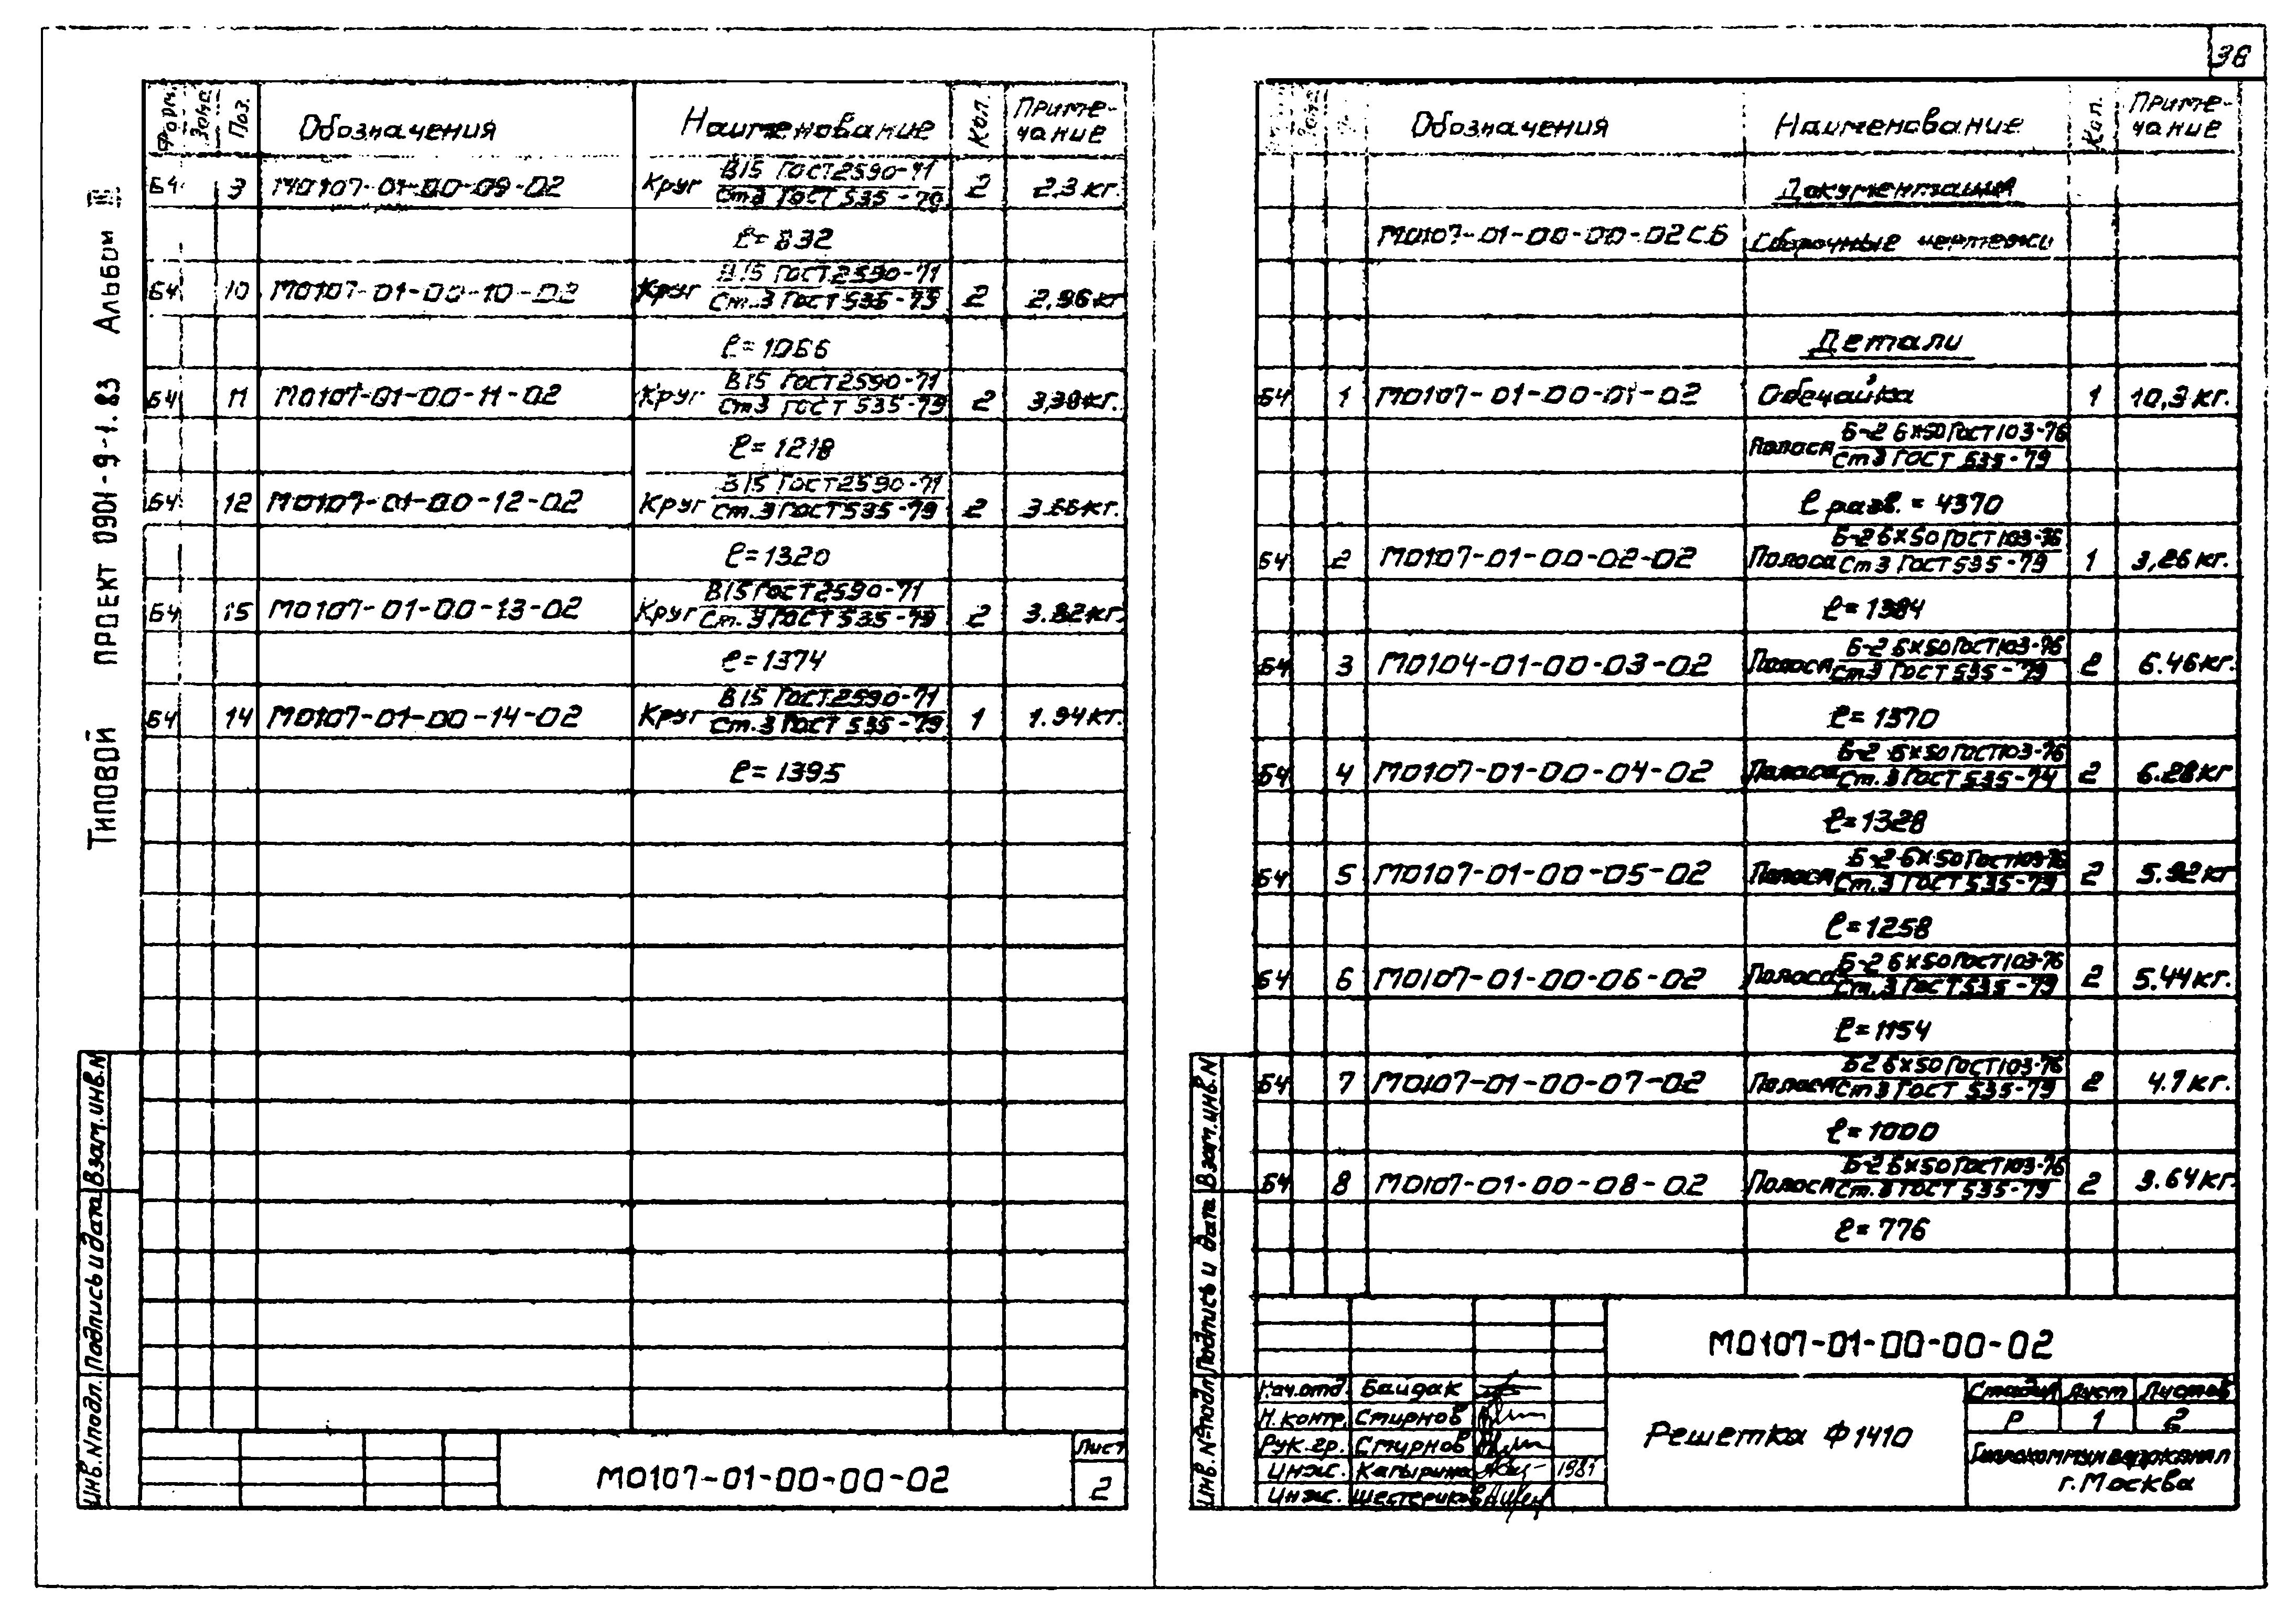 38
Типовой проект 0901-9-1.83 Альбом III
Форм. Зона Поз. Обозначения Наименование Кол. Приме-чание
Б4 9 М0107-01-00-09-02 Круг В15 ГОСТ2590-71 / Ст3 ГОСТ 535-79 2 2,3 кг.
ℓ=832
Б4 10 М0107-01-00-10-02 Круг В15 ГОСТ2590-71 / Ст.3 ГОСТ 535-79 2 2,96 кг
ℓ=1066
Б4 11 М0107-01-00-11-02 Круг В15 ГОСТ2590-71 / Ст3 ГОСТ 535-79 2 3,38кг.
ℓ=1218
Б4 12 М0107-01-00-12-02 Круг В15 ГОСТ2590-71 / Ст.3 ГОСТ 535-79 2 3.66кг.
ℓ=1320
Б4 13 М0107-01-00-13-02 Круг В15 ГОСТ2590-71 / Ст.3 ГОСТ 535-79 2 3.82кг.
ℓ=1374
Б4 14 М0107-01-00-14-02 Круг В15 ГОСТ2590-71 / Ст.3 ГОСТ 535-79 1 1.94кг.
ℓ=1395
Инв.Nподл. Подпись и дата Взам.инв.N
М0107-01-00-00-02
Лист
2
Зона Обозначения Наименование Кол. Приме-чание
Документация
М0107-01-00-00-02СБ Сборочные чертежи
Детали
Б4 1 М0107-01-00-01-02 Обечайка 1 10,3 кг.
Полоса Б-2 6×50 ГОСТ103-76 / Ст3 ГОСТ 535-79
ℓ разв. = 4370
Б4 2 М0107-01-00-02-02 Полоса Б-2 6×50 ГОСТ103-76 / Ст3 ГОСТ535-79 1 3,26 кг.
ℓ=1384
Б4 3 М0104-01-00-03-02 Полоса Б-2 6×50 ГОСТ103-76 / Ст3 ГОСТ535-79 2 6.46кг.
ℓ=1370
Б4 4 М0107-01-00-04-02 Полоса Б-2 6×50 ГОСТ103-76 / Ст.3 ГОСТ 535-74 2 6.28кг
ℓ=1328
Б4 5 М0107-01-00-05-02 Полоса Б-2 6×50 ГОСТ103-76 / Ст.3 ГОСТ 535-79 2 5.92кг
ℓ=1258
Б4 6 М0107-01-00-06-02 Полоса Б-2 6×50 ГОСТ103-76 / Ст.3 ГОСТ535-79 2 5.44кг.
ℓ=1154
Б4 7 М0107-01-00-07-02 Полоса Б2 6×50 ГОСТ103-76 / Ст3 ГОСТ 535-79 2 4.7кг.
ℓ=1000
Б4 8 М0107-01-00-08-02 Полоса Б-2 6×50 ГОСТ103-76 / Ст.3 ГОСТ 535-79 2 3.64кг.
ℓ=776
Инв.Nºподл Подпись и дата Взам.инв.N
М0107-01-00-00-02
Нач.отд. Байдак
Н.контр. Смирнов
Рук.гр. Смирнов
Инж. Капырина
Инж. Шестериков
Решетка Ф1410
Стадия Лист Листов
Р 1 2
Гипрокоммунводоканал
г.Москва